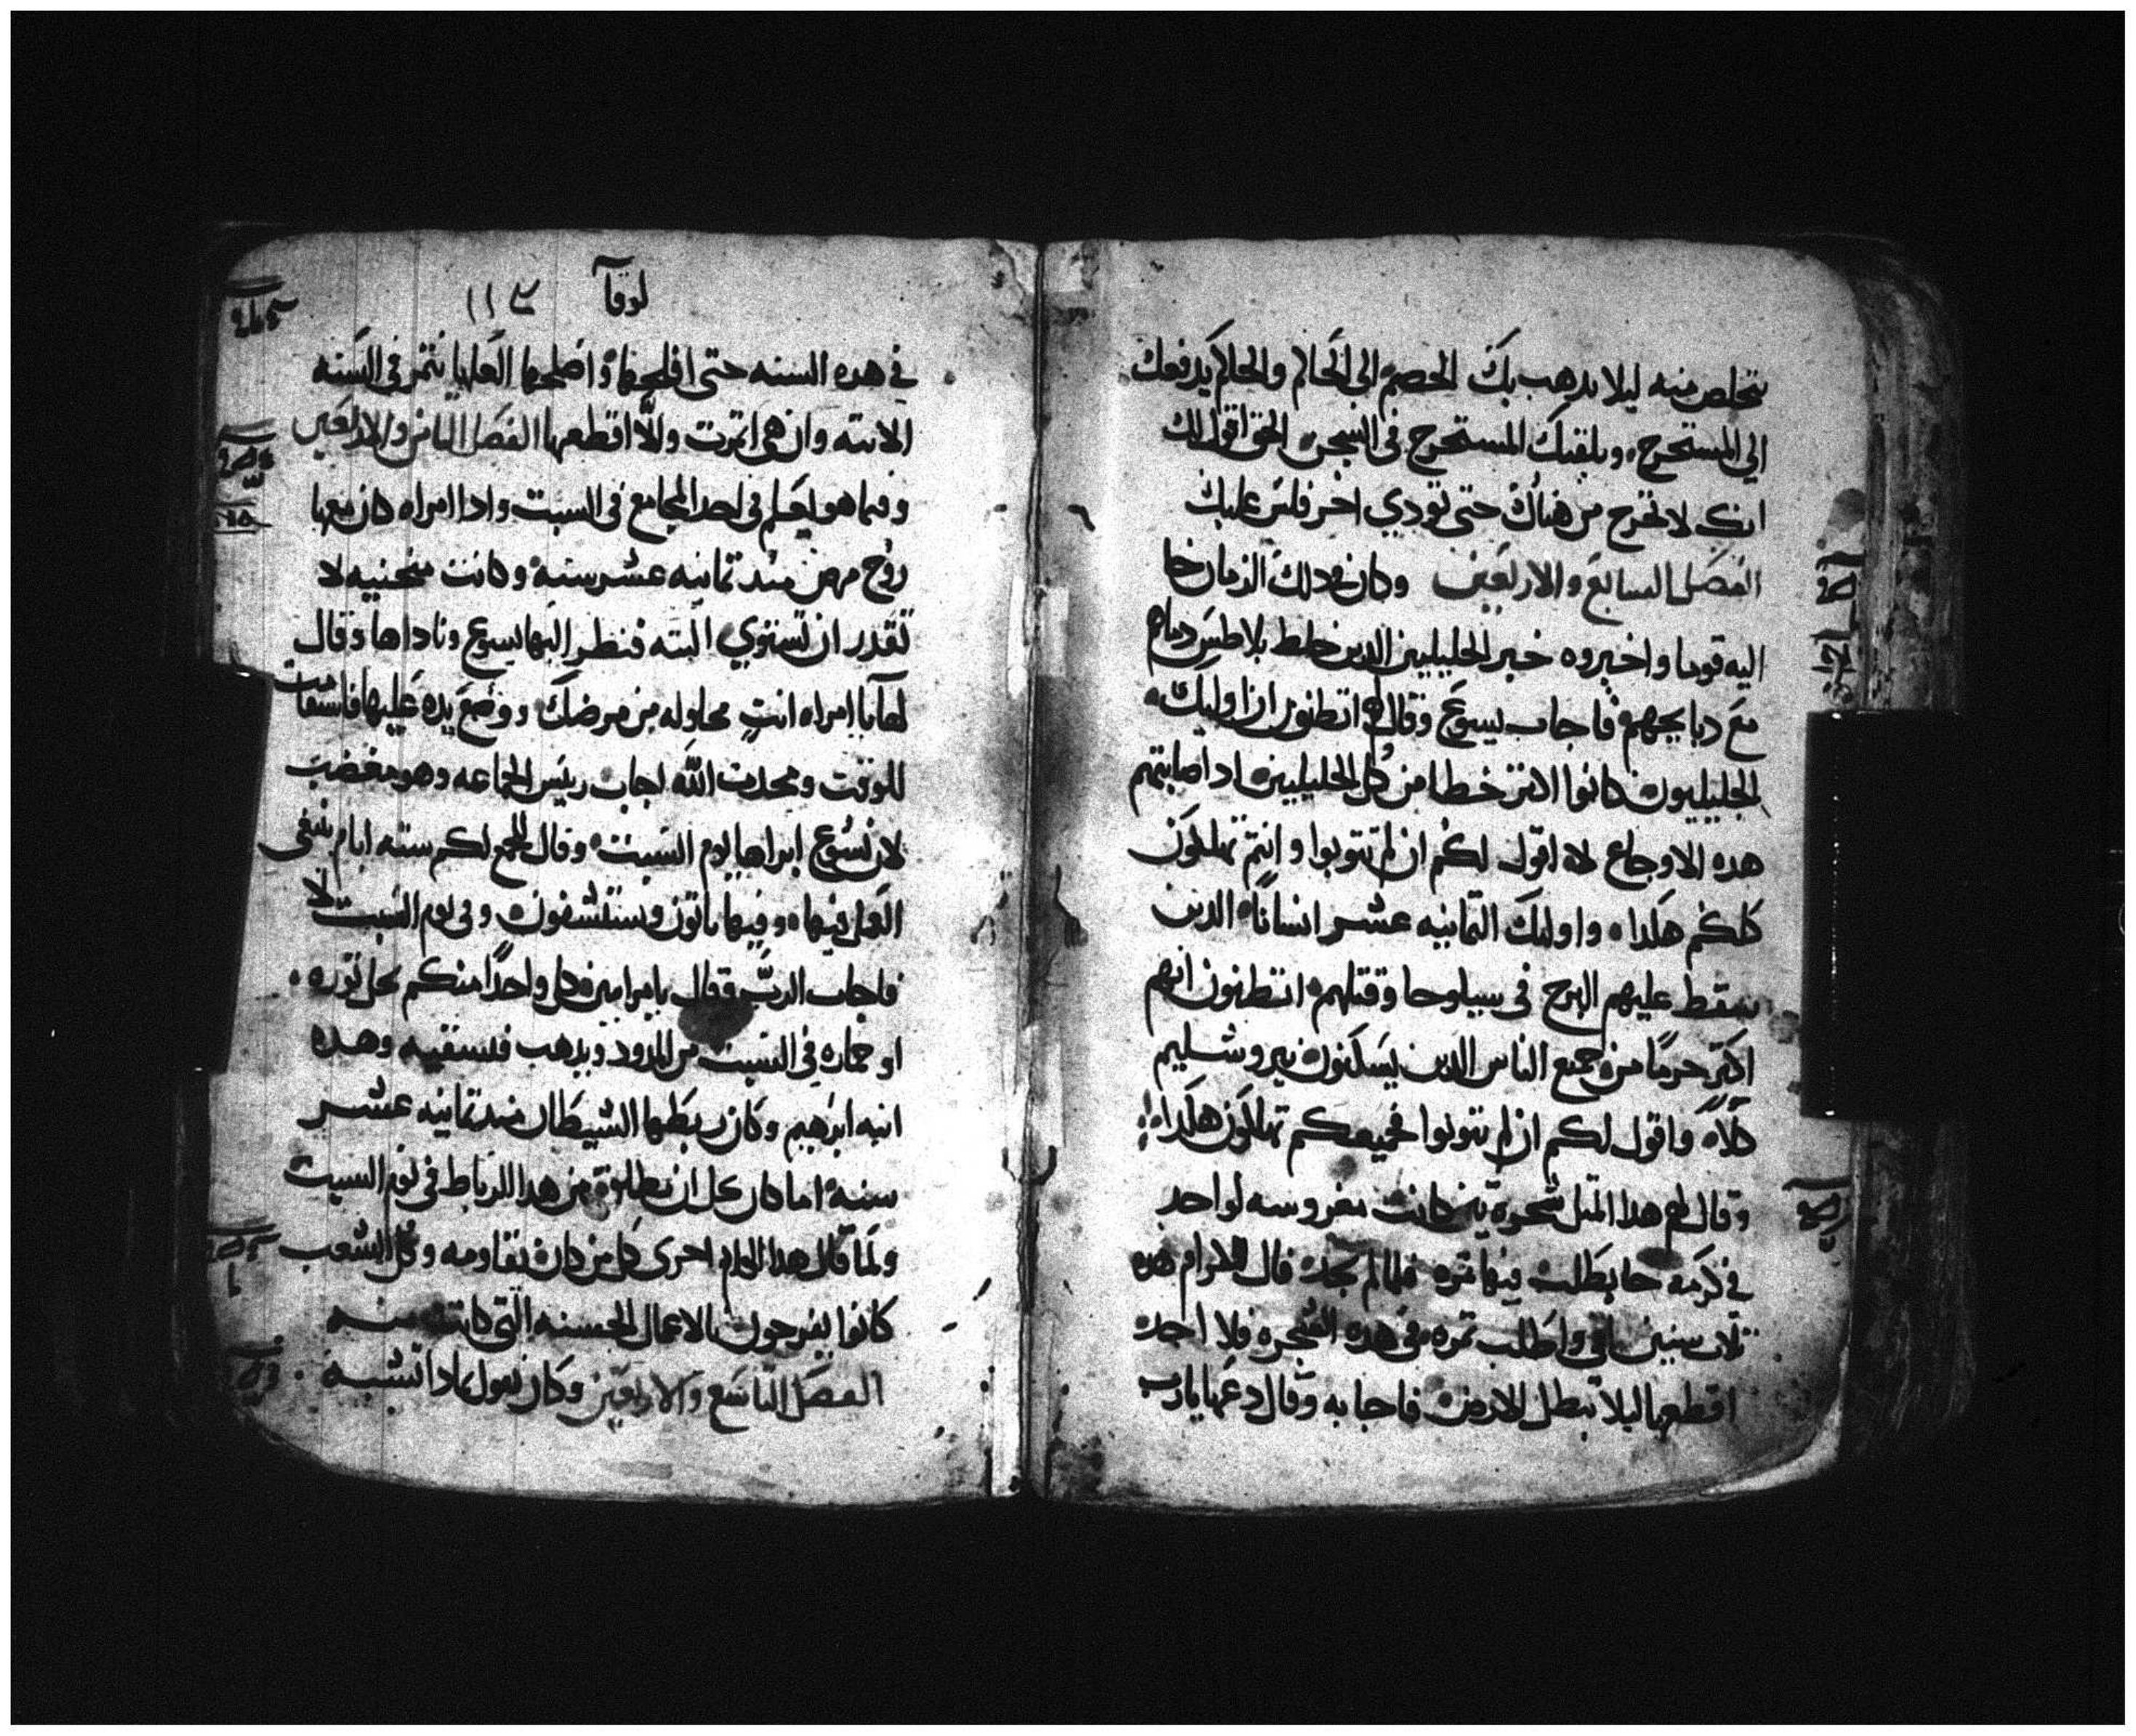 تتخلص منه ليلا يدهب بك الخصم الى الحاكم والحاكم يدفعك
الي المستخرج ويلقيك المستخرج في السجن الحق اقول لك
انك لا تخرج من هناك حتى تودي اخر فلس عليك
الفصل السابع والاربعين وكان في دلك الزمان جا
اليه قوما واخبروه خبر الجليليين الدين خلط بلاطس دماهم
مع دبايحهم فاجاب يسوع وقال لهم اتظنون ان اوليك
الجليليون كانوا اكتر خطا من كل الجليليين اد اصابتهم
هده الاوجاع لا اقول لكم ان لم تتوبوا وانتم تهلكون
كلكم هكدا واوليك التمانيه عشر انسانا الدين
سقط عليهم البرج في سيلوحا وقتلهم اتظنون انهم
اكتر جرما من جميع الناس الدين يسكنون يروشليم
كلا واقول لكم ان لم تتوبوا فجميعكم تهلكون هكدا
وقال لهم هدا المتل شجرة تين كانت مغروسه لواحد
في كرمه جا يطلب فيها تمره فلما لم يجد قال للكرام هده
تلات سنين اتي واطلب تمره في هده الشجره فلا اجد
اقطعها ليلا تبطل الارض فاجابه وقال دعها يارب
لوقا
في هده السنه حتى افلحها واصلحها لعلها تتمر في السنه
الاتيه وان هي اتمرت والا اقطعها الفصل التامن والاربعين
وفيما هو يعلم في احد المجامع في السبت وادا امراه كان معها
روح مرض مند تمانيه عشر سنه وكانت منحنيه لا
تقدر ان تستوي البته فنظر اليها يسوع وناداها وقال
لها يا امراه انت محلوله من مرضك ووضع يده عليها فاستقامت
للوقت ومجدت الله اجاب رييس الجماعه وهو مغضب
لان يسوع ابراها يوم السبت وقال للجمع لكم سته ايام ينبغي
العمل فيها وفيها ياتون ويستشفون وفي يوم السبت لا
فاجاب الرب وقال يا مرايين كل واحدا منكم يحل توره
او حماره في السبت من المدود ويدهب فيسقيه وهده
ابنه ابرهيم وكان ربطها الشيطان مند تمانيه عشر
سنه اما كان يحل ان تطلق من هدا الرباط في يوم السبت
ولما قال هدا الكلام اخزي كل من كان يقاومه وكل الشعب
كانوا يفرحون بالاعمال الحسنه التي كانت منه
الفصل التاسع والاربعين وكان يقول بمادا تشبه